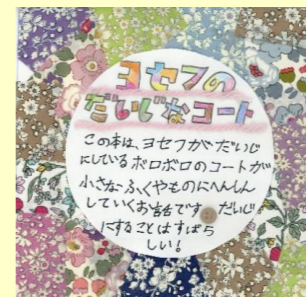 ヨセフの
だいじなコート
この本は、ヨセフがだいじ
にしているボロボロのコートが
小さなふくやものにへんしん
していくお話です。だいじ
にすることはすばら
しい!